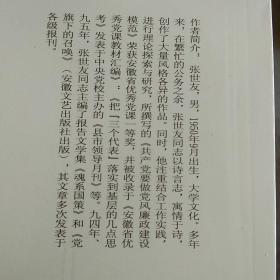 作者简介，张世友，男，1950年9月出生，大学文化。多年
来，在繁忙的公务之余，张世友同志以诗言志，寓情于诗，
创作了大量风格各异的作品。同时，他注重结合工作实践，
进行理论探索与研究。所撰写的《共产党要做党风廉政建设
模范》荣获安徽省优秀党课一等奖，并被收录于《安徽省优
秀党课教材汇编》；《把“三个代表”落实到基层的几点思
考》发表于中央党校主办的《县市领导月刊》等。九四年、
九五年，张世友同志主编了报告文学集《魂系国策》和《党
旗下的召唤》（安徽文艺出版社出版），其文章多次发表于
各级报刊。